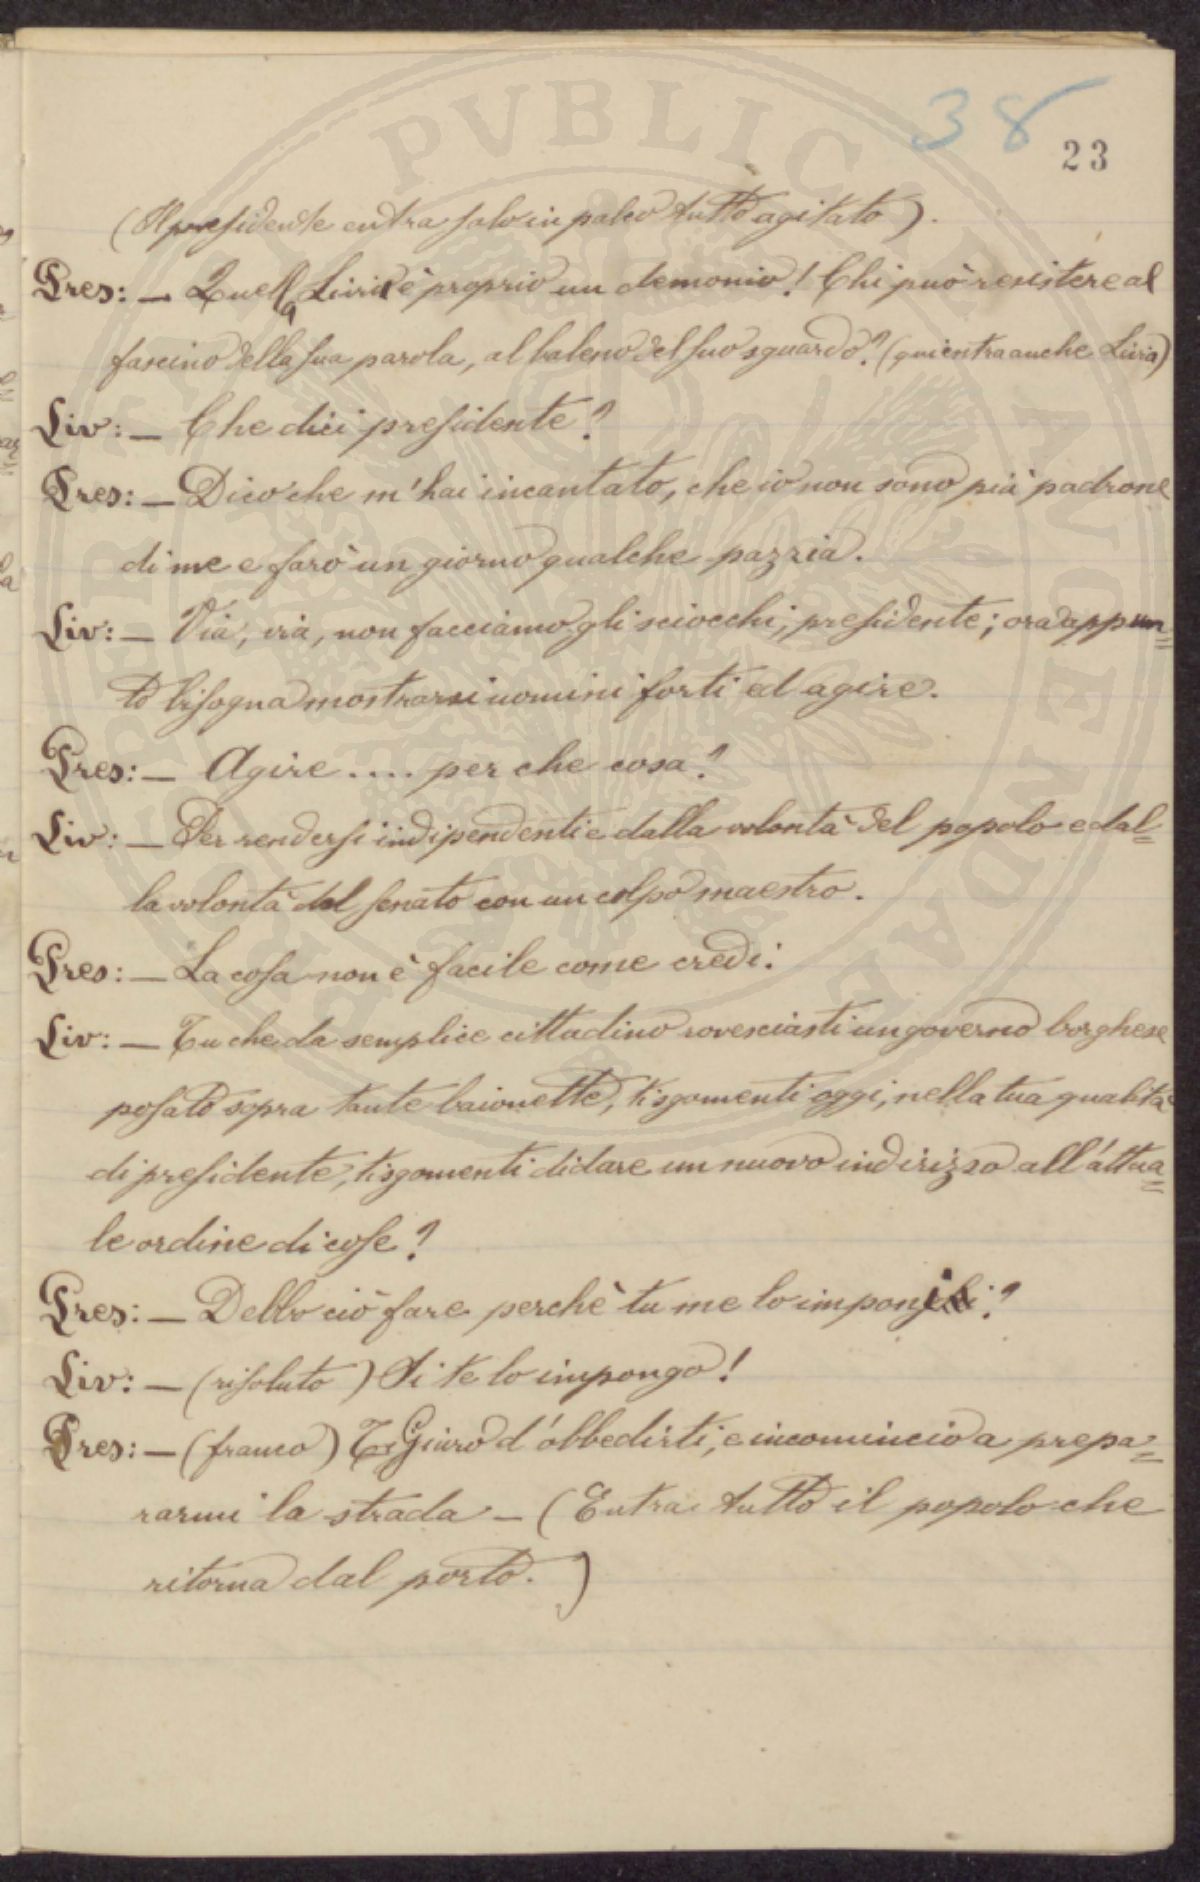 38
23
(Il presidente entra solo in palco tutto agitato).
Pres: — Quella Livia è proprio un demonio! Chi può resistere al
fascino della sua parola, al baleno del suo sguardo? (qui entra anche Livia)
Liv: — Che dici presidente?
Pres: — Dico che m'hai incantato, che io non sono più padrone
di me e farò un giorno qualche pazzia.
Liv: — Via, via, non facciamo gli sciocchi, presidente; ora appun=
to bisogna mostrarsi uomini forti ed agire.
Pres: — Agire .... per che cosa?
Liv: — Per rendersi indipendenti e dalla volontà del popolo e dal=
la volontà del senato con un colpo maestro.
Pres: — La cosa non è facile come credi.
Liv: — Tu che da semplice cittadino rovesciasti un governo borghese
posato sopra tante baionette, ti sgomenti oggi, nella tua qualità
di presidente, ti sgomenti di dare un nuovo indirizzo all'attua=
le ordine di cose?
Pres: — Debbo ciò fare perchè tu me lo imponi?
Liv: — (risoluto) Si te lo impongo!
Pres: — (franco) Giuro d'obbedirti, e incomincio a prepa=
rarmi la strada — (Entra tutto il popolo che
ritorna dal porto.)
PVBLICAE